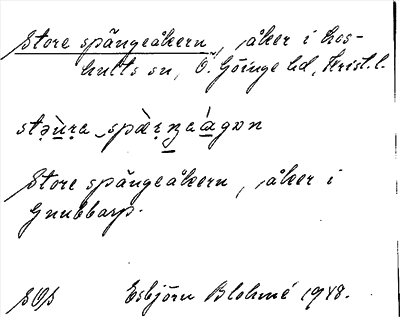 Store spångeåkern, åker i Los-
hults sn, Ö. Göinge hd, Krist. l.
Store spångeåkern, åker i
Gnubbarp.
SOS Esbjörn Blohmé 1948.